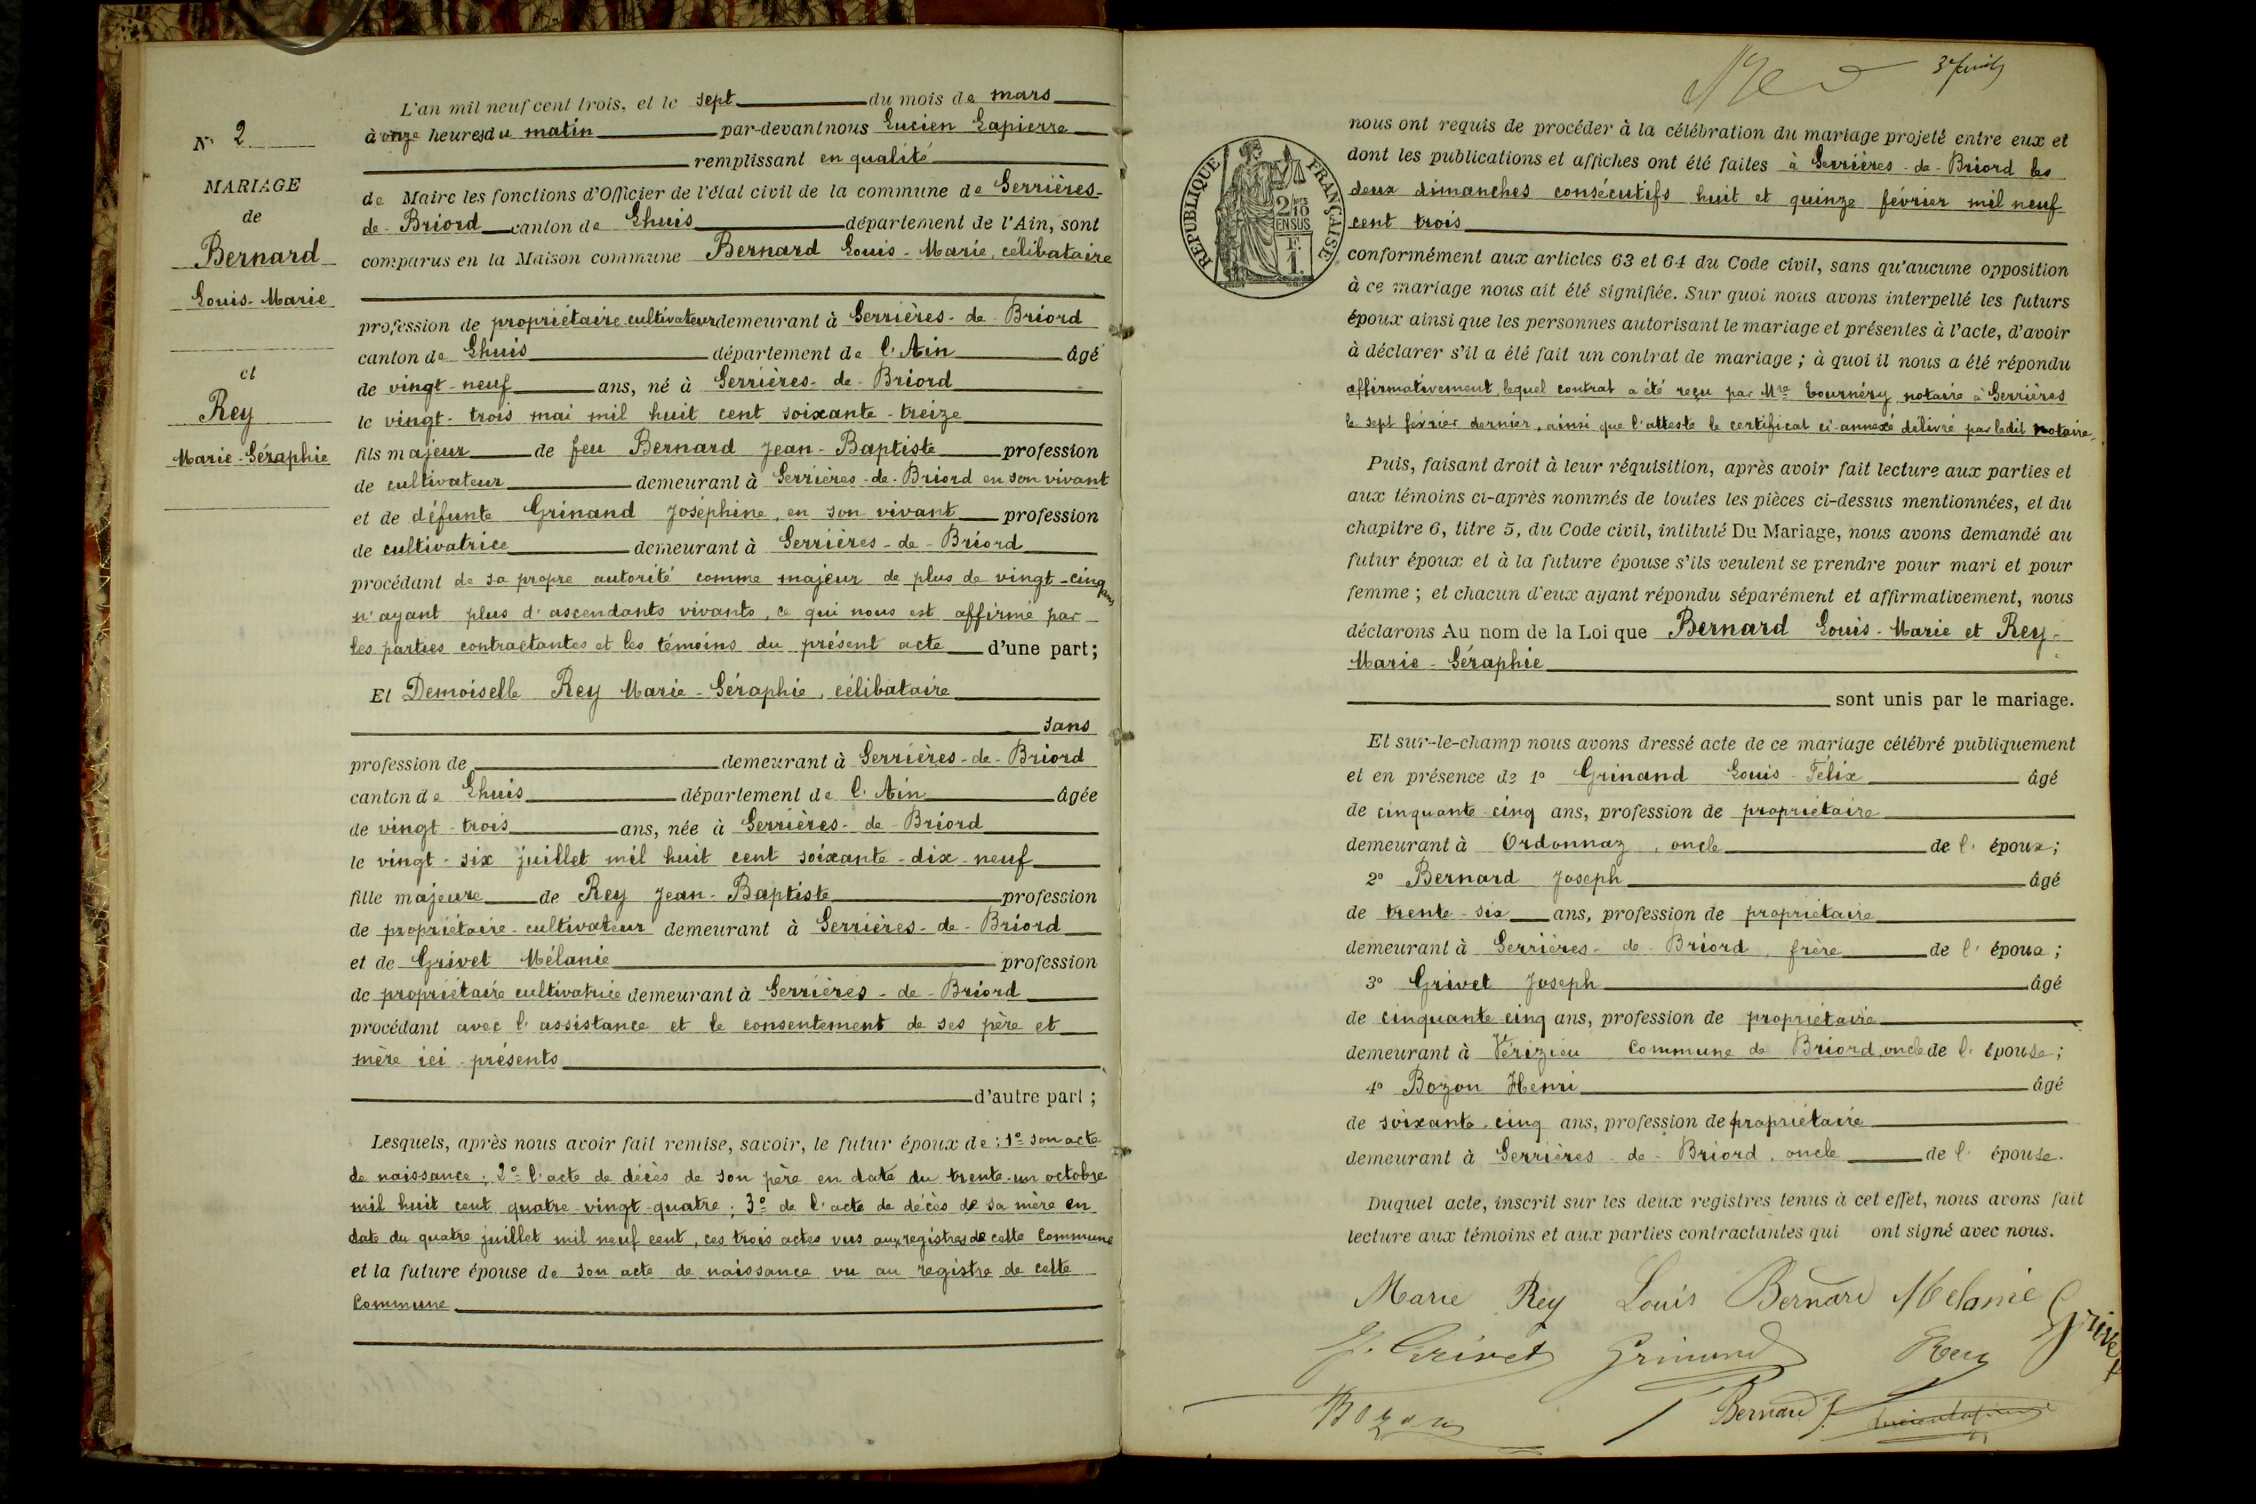 L'an mil neuf cent trois, et le sept du mois de mars
à onze heures du matin par-devant nous Lucien Lapierre
remplissant en qualité
de Maire les fonctions d'Officier de l'état civil de la commune de Serrières-
de-Briord canton de Lhuis département de l'Ain, sont
comparus en la Maison commune Bernard Louis-Marie, célibataire
profession de propriétaire cultivateur demeurant à Serrières-de-Briord
canton de Lhuis département de l'Ain âgé
de vingt-neuf ans, né à Serrières-de-Briord
le vingt-trois mai mil huit cent soixante-treize
fils majeur de feu Bernard Jean-Baptiste profession
de cultivateur demeurant à Serrières-de-Briord en son vivant
et de défunte Grinand Joséphine, en son vivant profession
de cultivatrice demeurant à Serrières-de-Briord
procédant de sa propre autorité comme majeur de plus de vingt-cinq ans
n'ayant plus d'ascendants vivants, ce qui nous est affirmé par
les parties contractantes et les témoins du présent acte d'une part;
Et Demoiselle Rey Marie-Séraphie, célibataire
sans
profession de demeurant à Serrières-de-Briord
canton de Lhuis département de l'Ain âgée
de vingt-trois ans, née à Serrières-de-Briord
le vingt-six juillet mil huit cent soixante-dix-neuf
fille majeure de Rey Jean-Baptiste profession
de propriétaire-cultivateur demeurant à Serrières-de-Briord
et de Grivet Mélanie profession
de propriétaire cultivatrice demeurant à Serrières-de-Briord
procédant avec l'assistance et le consentement de ses père et
mère ici-présents
d'autre part;
Lesquels, après nous avoir fait remise, savoir, le futur époux de: 1º son acte
de naissance; 2º l'acte de décès de son père en date du trente-un octobre
mil huit cent quatre-vingt-quatre; 3º de l'acte de décès de sa mère en
date du quatre juillet mil neuf cent, ces trois actes vus aux registres de cette Commune
et la future épouse de son acte de naissance vu au registre de cette
Commune
Nº 2
MARIAGE
de
Bernard
Louis-Marie
et
Rey
Marie-Séraphie
3e feuillet
RÉPUBLIQUE FRANÇAISE
2/10
EN SUS
F.
1.
nous ont requis de procéder à la célébration du mariage projeté entre eux et
dont les publications et affiches ont été faites à Serrières-de-Briord les
deux dimanches consécutifs huit et quinze février mil neuf
cent trois
conformément aux articles 63 et 64 du Code civil, sans qu'aucune opposition
à ce mariage nous ait été signifiée. Sur quoi nous avons interpellé les futurs
époux ainsi que les personnes autorisant le mariage et présentes à l'acte, d'avoir
à déclarer s'il a été fait un contrat de mariage; à quoi il nous a été répondu
affirmativement, lequel contrat a été reçu par Mre Tournéry, notaire à Serrières
le sept février dernier, ainsi que l'atteste le certificat ci-annexé délivré par ledit notaire.
Puis, faisant droit à leur réquisition, après avoir fait lecture aux parties et
aux témoins ci-après nommés de toutes les pièces ci-dessus mentionnées, et du
chapitre 6, titre 5, du Code civil, intitulé Du Mariage, nous avons demandé au
futur époux et à la future épouse s'ils veulent se prendre pour mari et pour
femme; et chacun d'eux ayant répondu séparément et affirmativement, nous
déclarons Au nom de la Loi que Bernard Louis-Marie et Rey-
Marie-Séraphie
sont unis par le mariage.
Et sur-le-champ nous avons dressé acte de ce mariage célébré publiquement
et en présence de 1º Grinand Louis-Félix âgé
de cinquante-cinq ans, profession de propriétaire
demeurant à Ordonnaz, oncle de l'époux;
2º Bernard Joseph âgé
de trente-six ans, profession de propriétaire
demeurant à Serrières-de-Briord, frère de l'époux;
3º Grivet Joseph âgé
de cinquante-cinq ans, profession de propriétaire
demeurant à Vérizieu Commune de Briord, oncle de l'épouse;
4º Bozon Henri âgé
de soixante-cinq ans, profession de propriétaire
demeurant à Serrières-de-Briord, oncle de l'épouse.
Duquel acte, inscrit sur les deux registres tenus à cet effet, nous avons fait
lecture aux témoins et aux parties contractantes qui ont signé avec nous.
Marie Rey Louis Bernard Mélanie Grivet
J. Grivet Grinand Rey
Bozon Bernard J. Lucien Lapierre